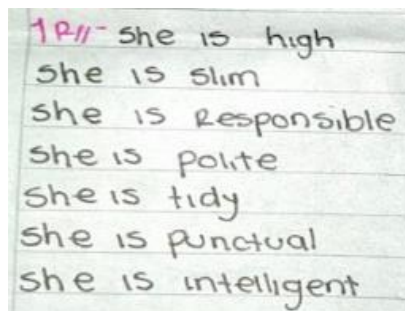 1R//- she is high
she is slim
she is Responsible
she is polite
she is tidy
she is punctual
she is intelligent